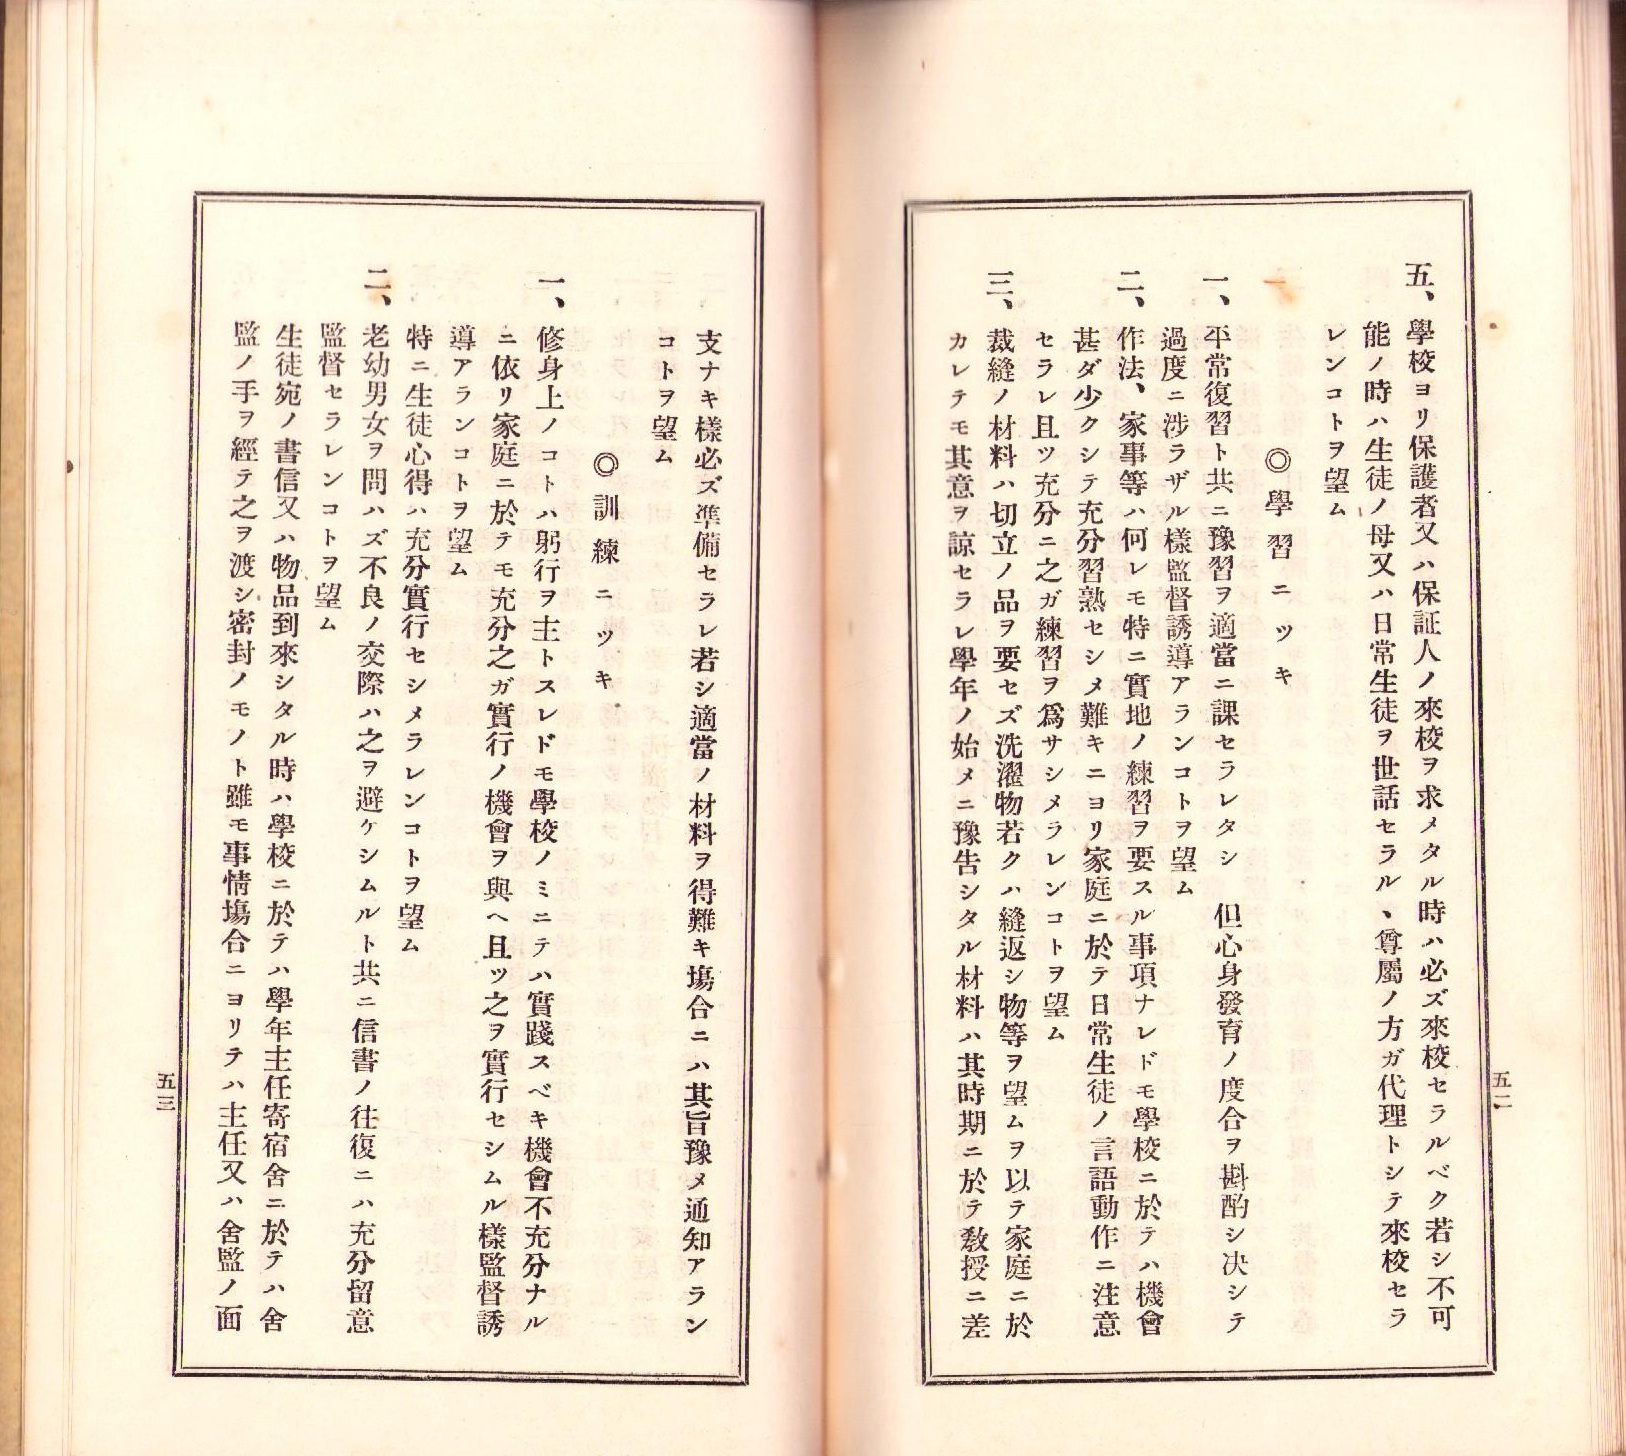 五、學校ヨリ保護者又ハ保証人ノ來校ヲ求メタル時ハ必ズ來校セラルベク若シ不可
能ノ時ハ生徒ノ母又ハ日常生徒ヲ世話セラルヽ尊屬ノ方ガ代理トシテ來校セラ
レンコトヲ望ム
◎學習ニツキ
一、平常復習ト共ニ豫習ヲ適當ニ課セラレタシ　但心身發育ノ度合ヲ斟酌シ決シテ
過度ニ涉ラザル樣監督誘導アランコトヲ望ム
二、作法、家事等ハ何レモ特ニ實地ノ練習ヲ要スル事項ナレドモ學校ニ於テハ機會
甚ダ少クシテ充分習熟セシメ難キニヨリ家庭ニ於テ日常生徒ノ言語動作ニ注意
セラレ且ツ充分ニ之ガ練習ヲ爲サシメラレンコトヲ望ム
三、裁縫ノ材料ハ切立ノ品ヲ要セズ洗濯物若クハ縫返シ物等ヲ望ムヲ以テ家庭ニ於
カレテモ其意ヲ諒セラレ學年ノ始メニ豫告シタル材料ハ其時期ニ於テ敎授ニ差
五二
支ナキ樣必ズ準備セラレ若シ適當ノ材料ヲ得難キ塲合ニハ其旨豫メ通知アラン
コトヲ望ム
◎訓練ニツキ
一、修身上ノコトハ躬行ヲ主トスレドモ學校ノミニテハ實踐スベキ機會不充分ナル
ニ依リ家庭ニ於テモ充分之ガ實行ノ機會ヲ與ヘ且ツ之ヲ實行セシムル樣監督誘
導アランコトヲ望ム
特ニ生徒心得ハ充分實行セシメラレンコトヲ望ム
二、老幼男女ヲ問ハズ不良ノ交際ハ之ヲ避ケシムルト共ニ信書ノ往復ニハ充分留意
監督セラレンコトヲ望ム
生徒宛ノ書信又ハ物品到來シタル時ハ學校ニ於テハ學年主任寄宿舍ニ於テハ舍
監ノ手ヲ經テ之ヲ渡シ密封ノモノト雖モ事情塲合ニヨリテハ主任又ハ舍監ノ面
五三